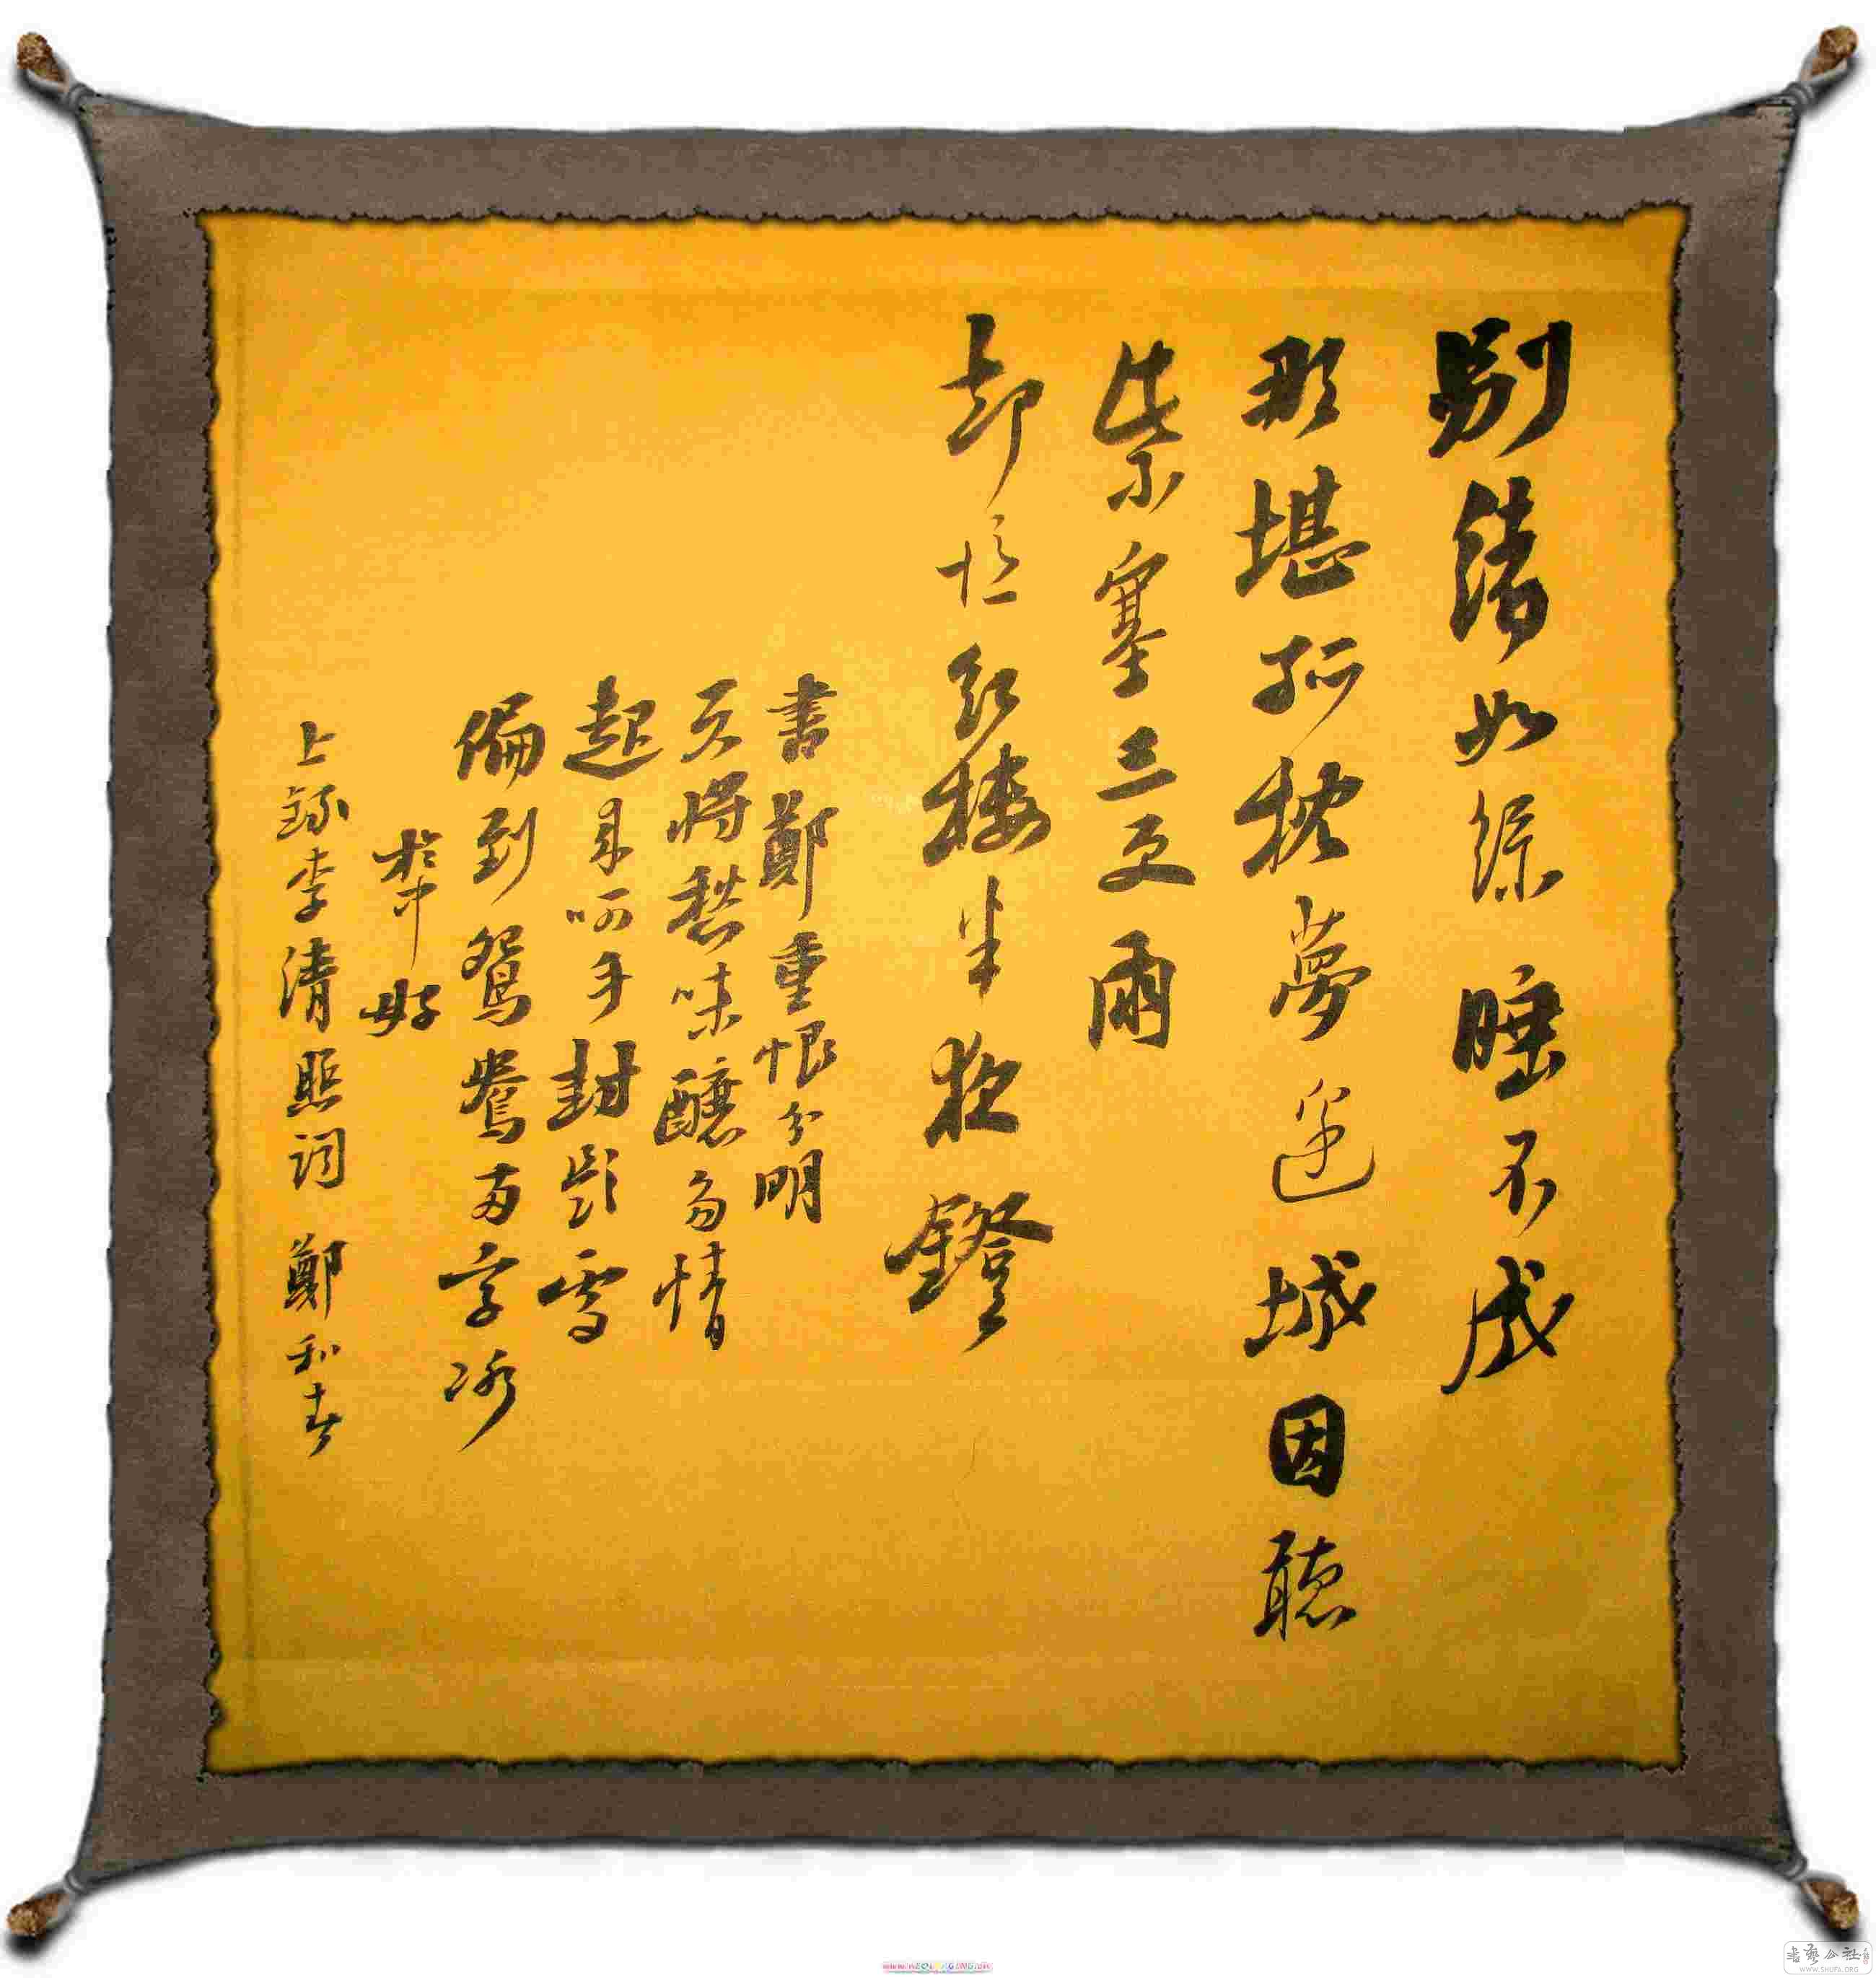 別緒如絲睡不成
那堪孤枕夢邊城因聽
紫塞三更雨
却憶紅樓半夜鐙
書鄭重恨分明
天將愁味釀多情
起來呵手封題處
偏到鴛鴦兩字冰
於中好
上錄李清照詞 鄭和春
書藝公社
WWW.SHUFA.ORG